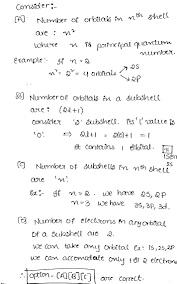 Consider:-
[A] Number of orbitals in nth shell
are : n²
where n is principal quantum
number.
Example:- If n = 2
n² = 2² = 4 orbitals
2S
2P
[B] Number of orbitals in a subshell
are : (2l+1)
consider 's' subshell. It's 'l' value is
'0'. ⇒ 2l+1 = 2(0)+1 = 1
It contains 1 orbital.
[C] Number of subshells in nth shell
are 'n'.
Ex:- If n = 2. we have 2S, 2P
n = 3 we have 3S, 3P, 3d.
Number of electrons in any orbital
of a subshell are 2.
We can take any orbital Ex: 1S, 2S, 2P
we can accomodate only 2 electrons
∴ option - [A] [B] [C] are correct.